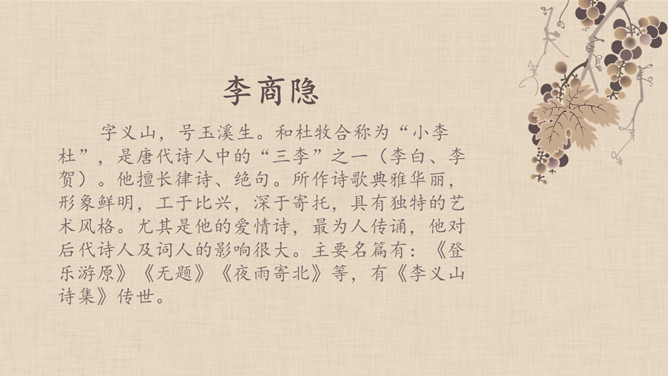 李商隐
字义山，号玉溪生。和杜牧合称为“小李
杜”，是唐代诗人中的“三李”之一（李白、李
贺）。他擅长律诗、绝句。所作诗歌典雅华丽，
形象鲜明，工于比兴，深于寄托，具有独特的艺
术风格。尤其是他的爱情诗，最为人传诵，他对
后代诗人及词人的影响很大。主要名篇有：《登
乐游原》《无题》《夜雨寄北》等，有《李义山
诗集》传世。